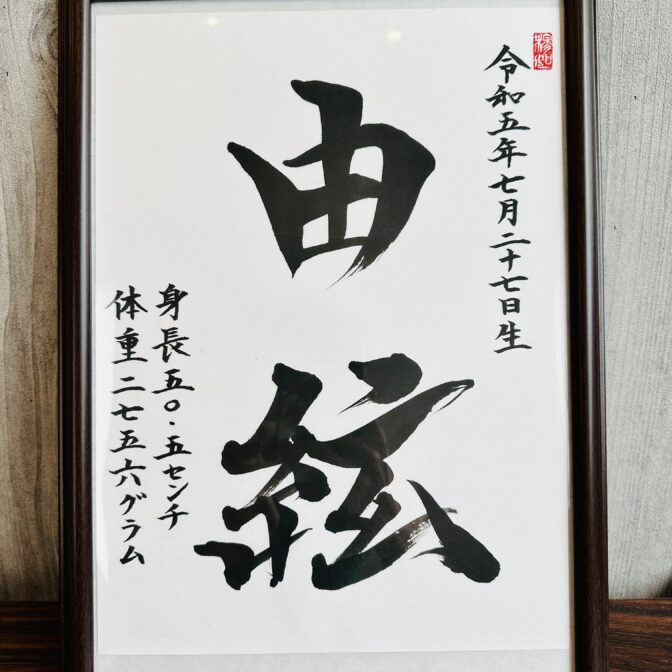 令和五年七月二十七日生
由絃
身長五〇・五センチ
体重二七五六グラム